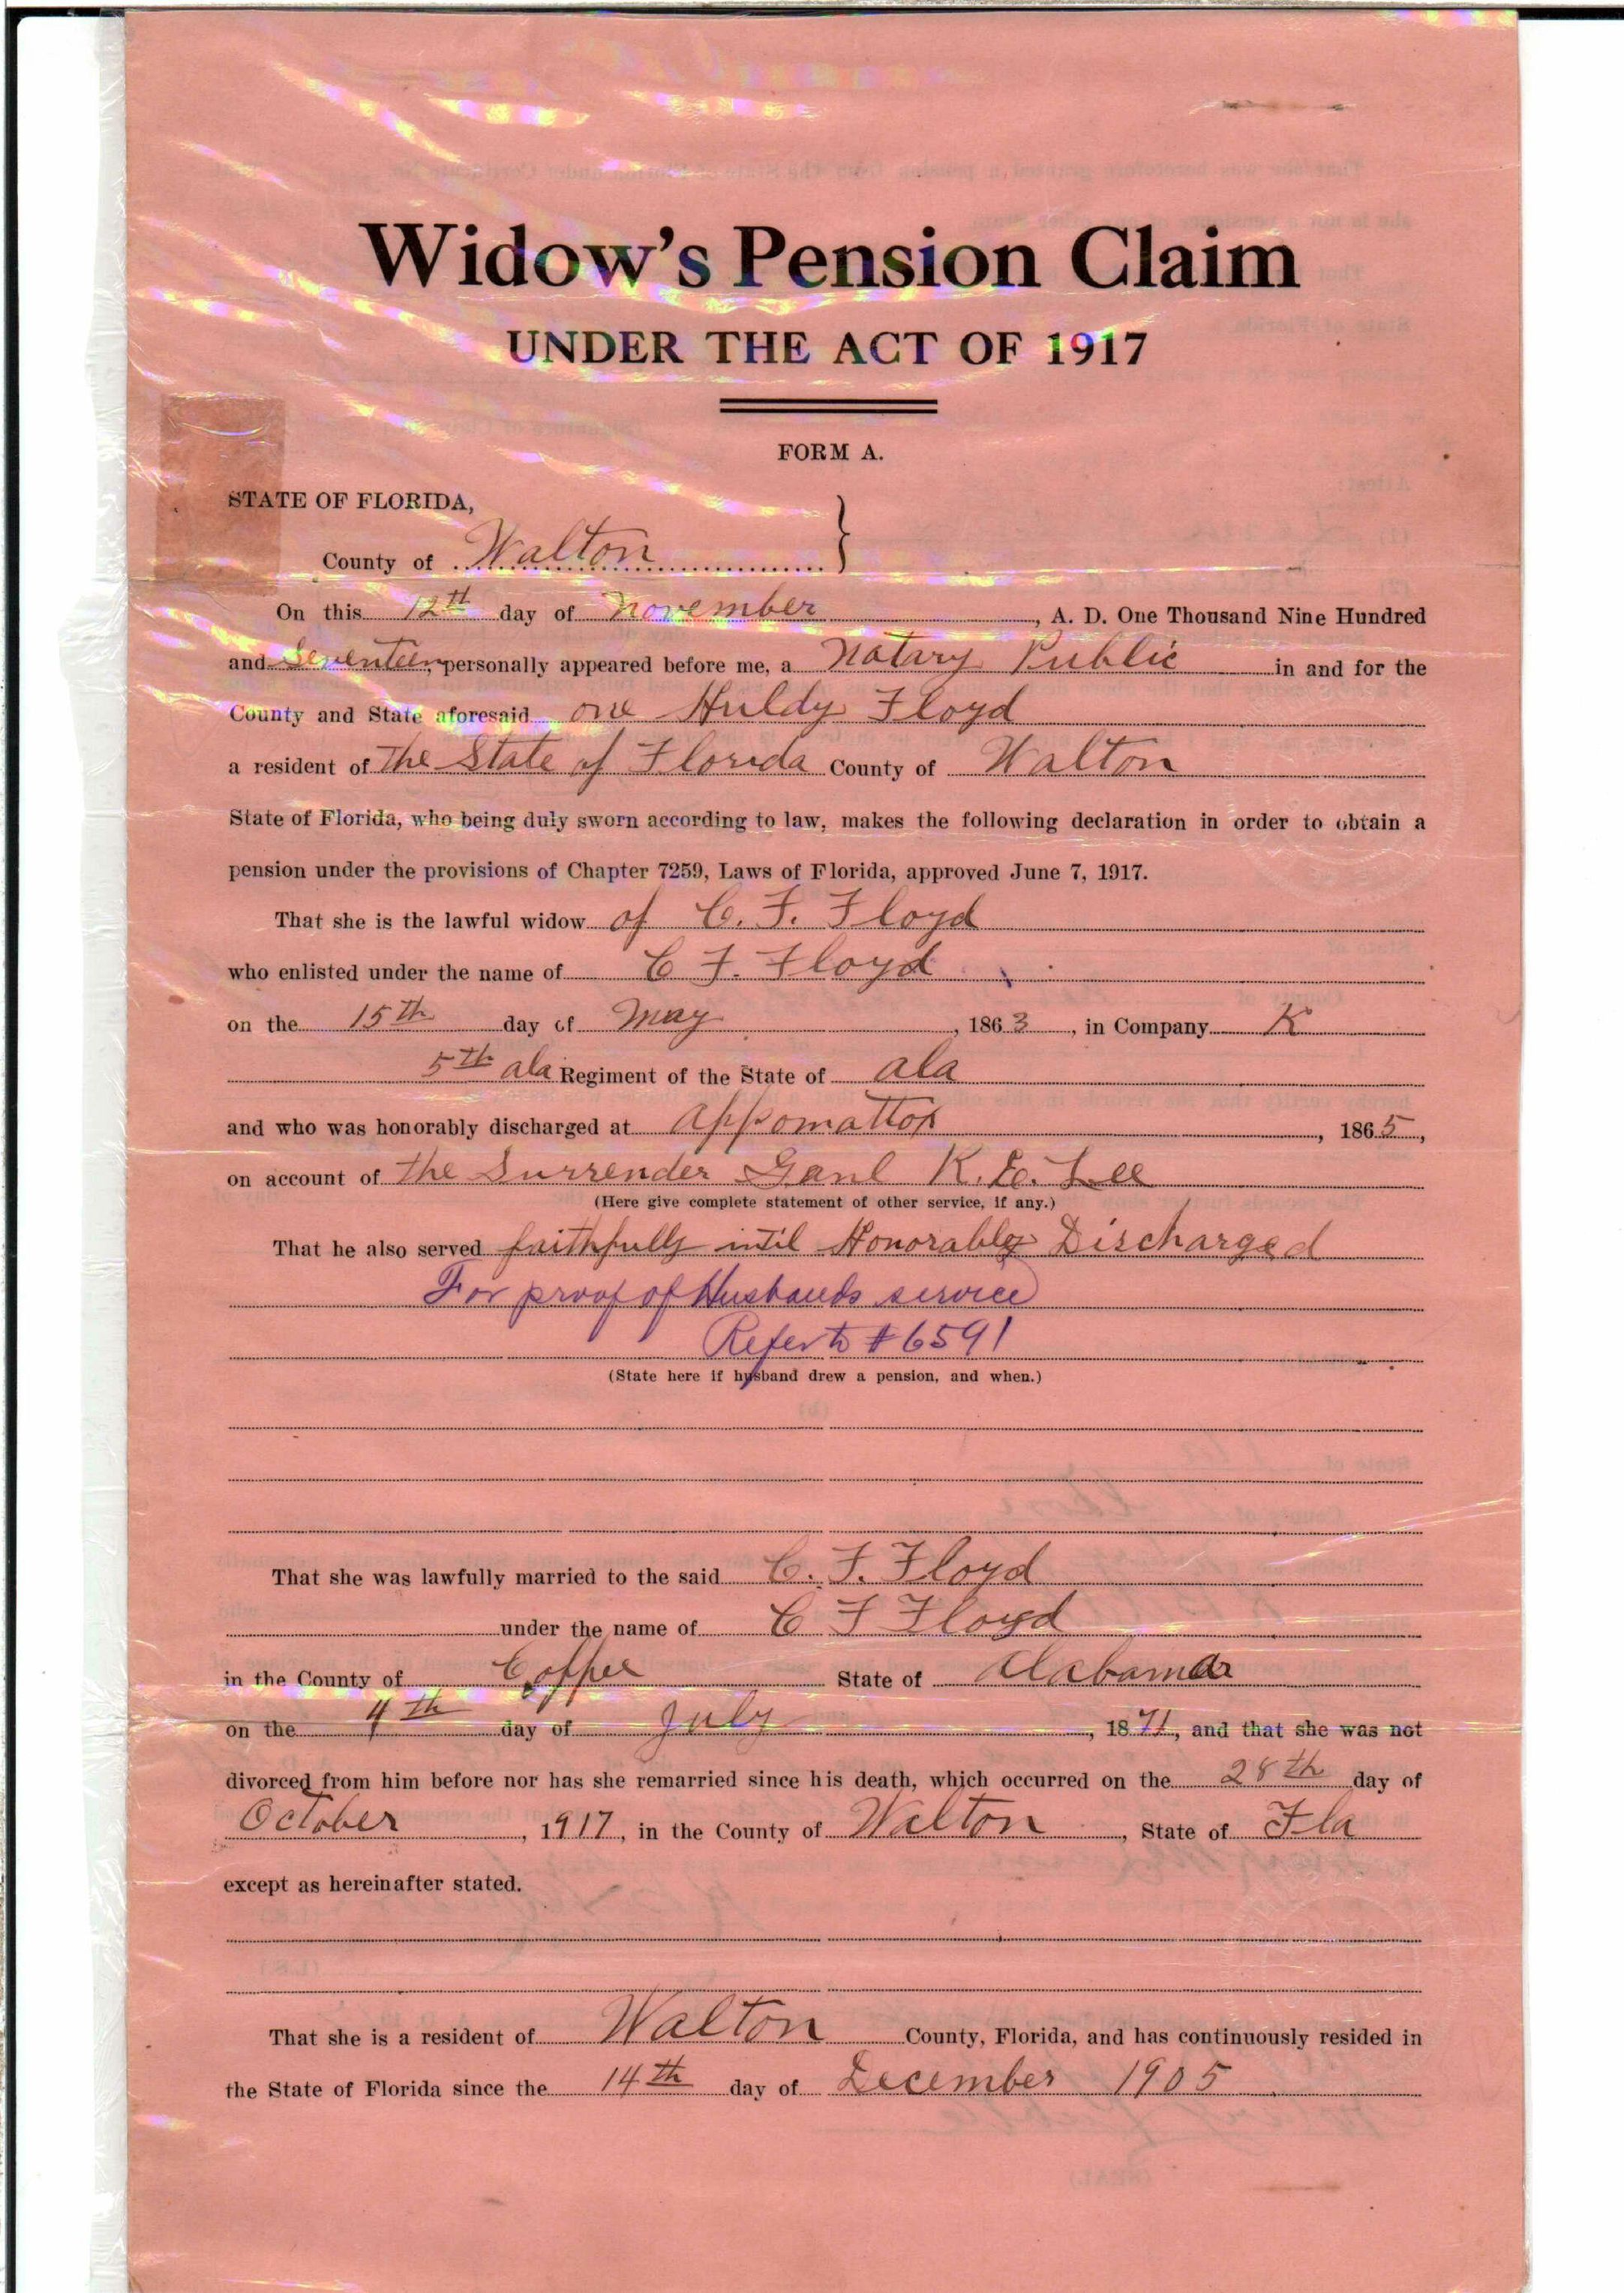 Widow's Pension Claim
UNDER THE ACT OF 1917
FORM A.
STATE OF FLORIDA,
County of Walton
On this 12th day of November, A. D. One Thousand Nine Hundred
and Seventeen, personally appeared before me, a Notary Public in and for the
County and State aforesaid one Huldy Floyd
a resident of The State of Florida County of Walton
State of Florida, who being duly sworn according to law, makes the following declaration in order to obtain a
pension under the provisions of Chapter 7259, Laws of Florida, approved June 7, 1917.
That she is the lawful widow of C. F. Floyd
who enlisted under the name of C F. Floyd
on the 15th day of May, 1863, in Company K
5th ala Regiment of the State of ala
and who was honorably discharged at appomattox, 1865,
on account of the Surrender Ganl R. E. Lee
(Here give complete statement of other service, if any.)
That he also served faithfully until Honorably Discharged
For proof of Husbands service
Refer to #6591
(State here if husband drew a pension, and when.)
That she was lawfully married to the said C. F. Floyd
under the name of C F Floyd
in the County of Coffee State of Alabama
on the 4th day of July, 1871, and that she was not
divorced from him before nor has she remarried since his death, which occurred on the 28th day of
October, 1917, in the County of Walton, State of Fla
except as hereinafter stated.
That she is a resident of Walton County, Florida, and has continuously resided in
the State of Florida since the 14th day of December 1905